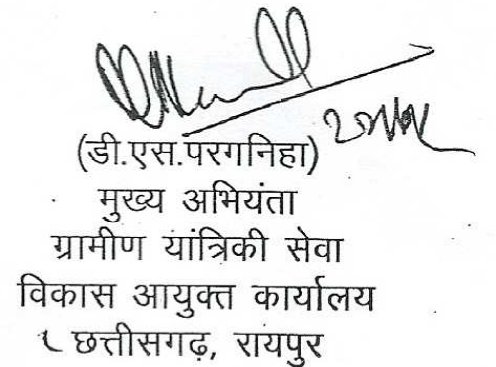 (डी.एस.परगनिहा)
मुख्य अभियंता
ग्रामीण यांत्रिकी सेवा
विकास आयुक्त कार्यालय
छत्तीसगढ़, रायपुर